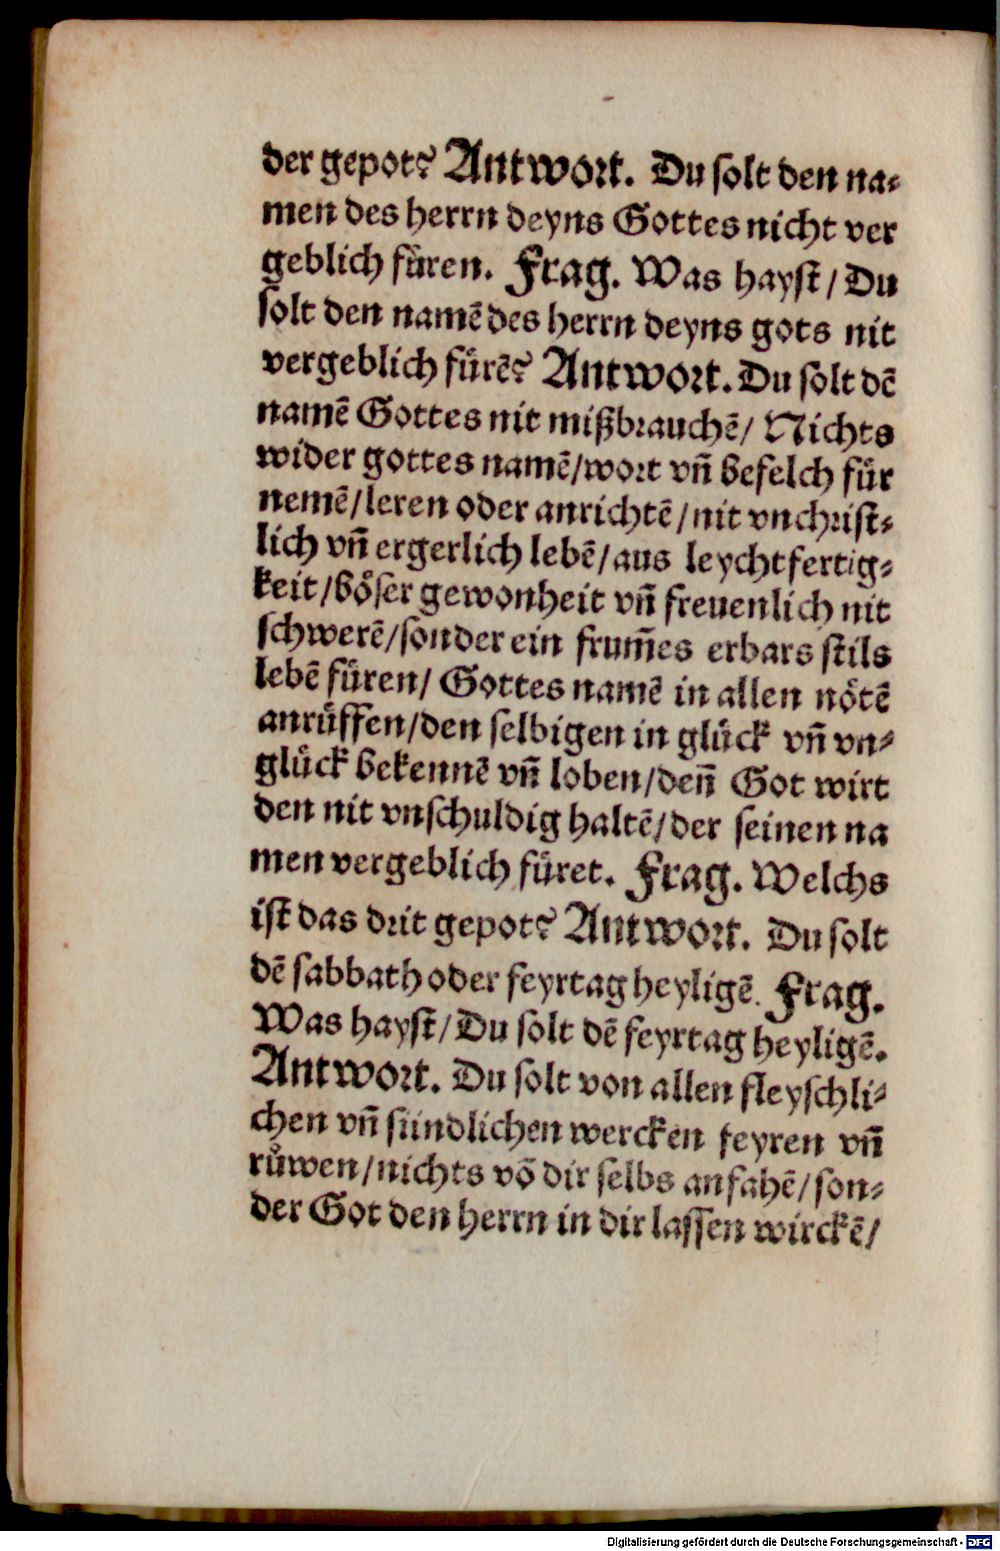 der gepot? Antwort. Du solt den na-
men des herrn deyns Gottes nicht ver
geblich fůren. Frag. Was hayst / Du
solt den namē des herrn deyns gots nit
vergeblich fůrē? Antwort. Du solt dē
namē Gottes nit mißbrauchē / Nichts
wider gottes namē / wort vn̄ befelch für
nemē / leren oder anrichtē / nit vnchrist-
lich vn̄ ergerlich lebē / aus leychtfertig-
keit / böser gewonheit vn̄ freuenlich nit
schwerē / sonder ein frum̄es erbars stils
lebē füren / Gottes namē in allen nötē
anrüffen / den selbigen in glück vn̄ vn-
glück bekennē vn̄ loben / den̄ Got wirt
den nit vnschuldig haltē / der seinen na
men vergeblich füret. Frag. Welchs
ist das drit gepot? Antwort. Du solt
dē sabbath oder feyrtag heyligē. Frag.
Was hayst / Du solt dē feyrtag heyligē.
Antwort. Du solt von allen fleyschli-
chen vn̄ sündlichen wercken feyren vn̄
růwen / nichts vō dir selbs anfahē / son-
der Got den herrn in dir lassen wirckē /
Digitalisierung gefördert durch die Deutsche Forschungsgemeinschaft - DFG